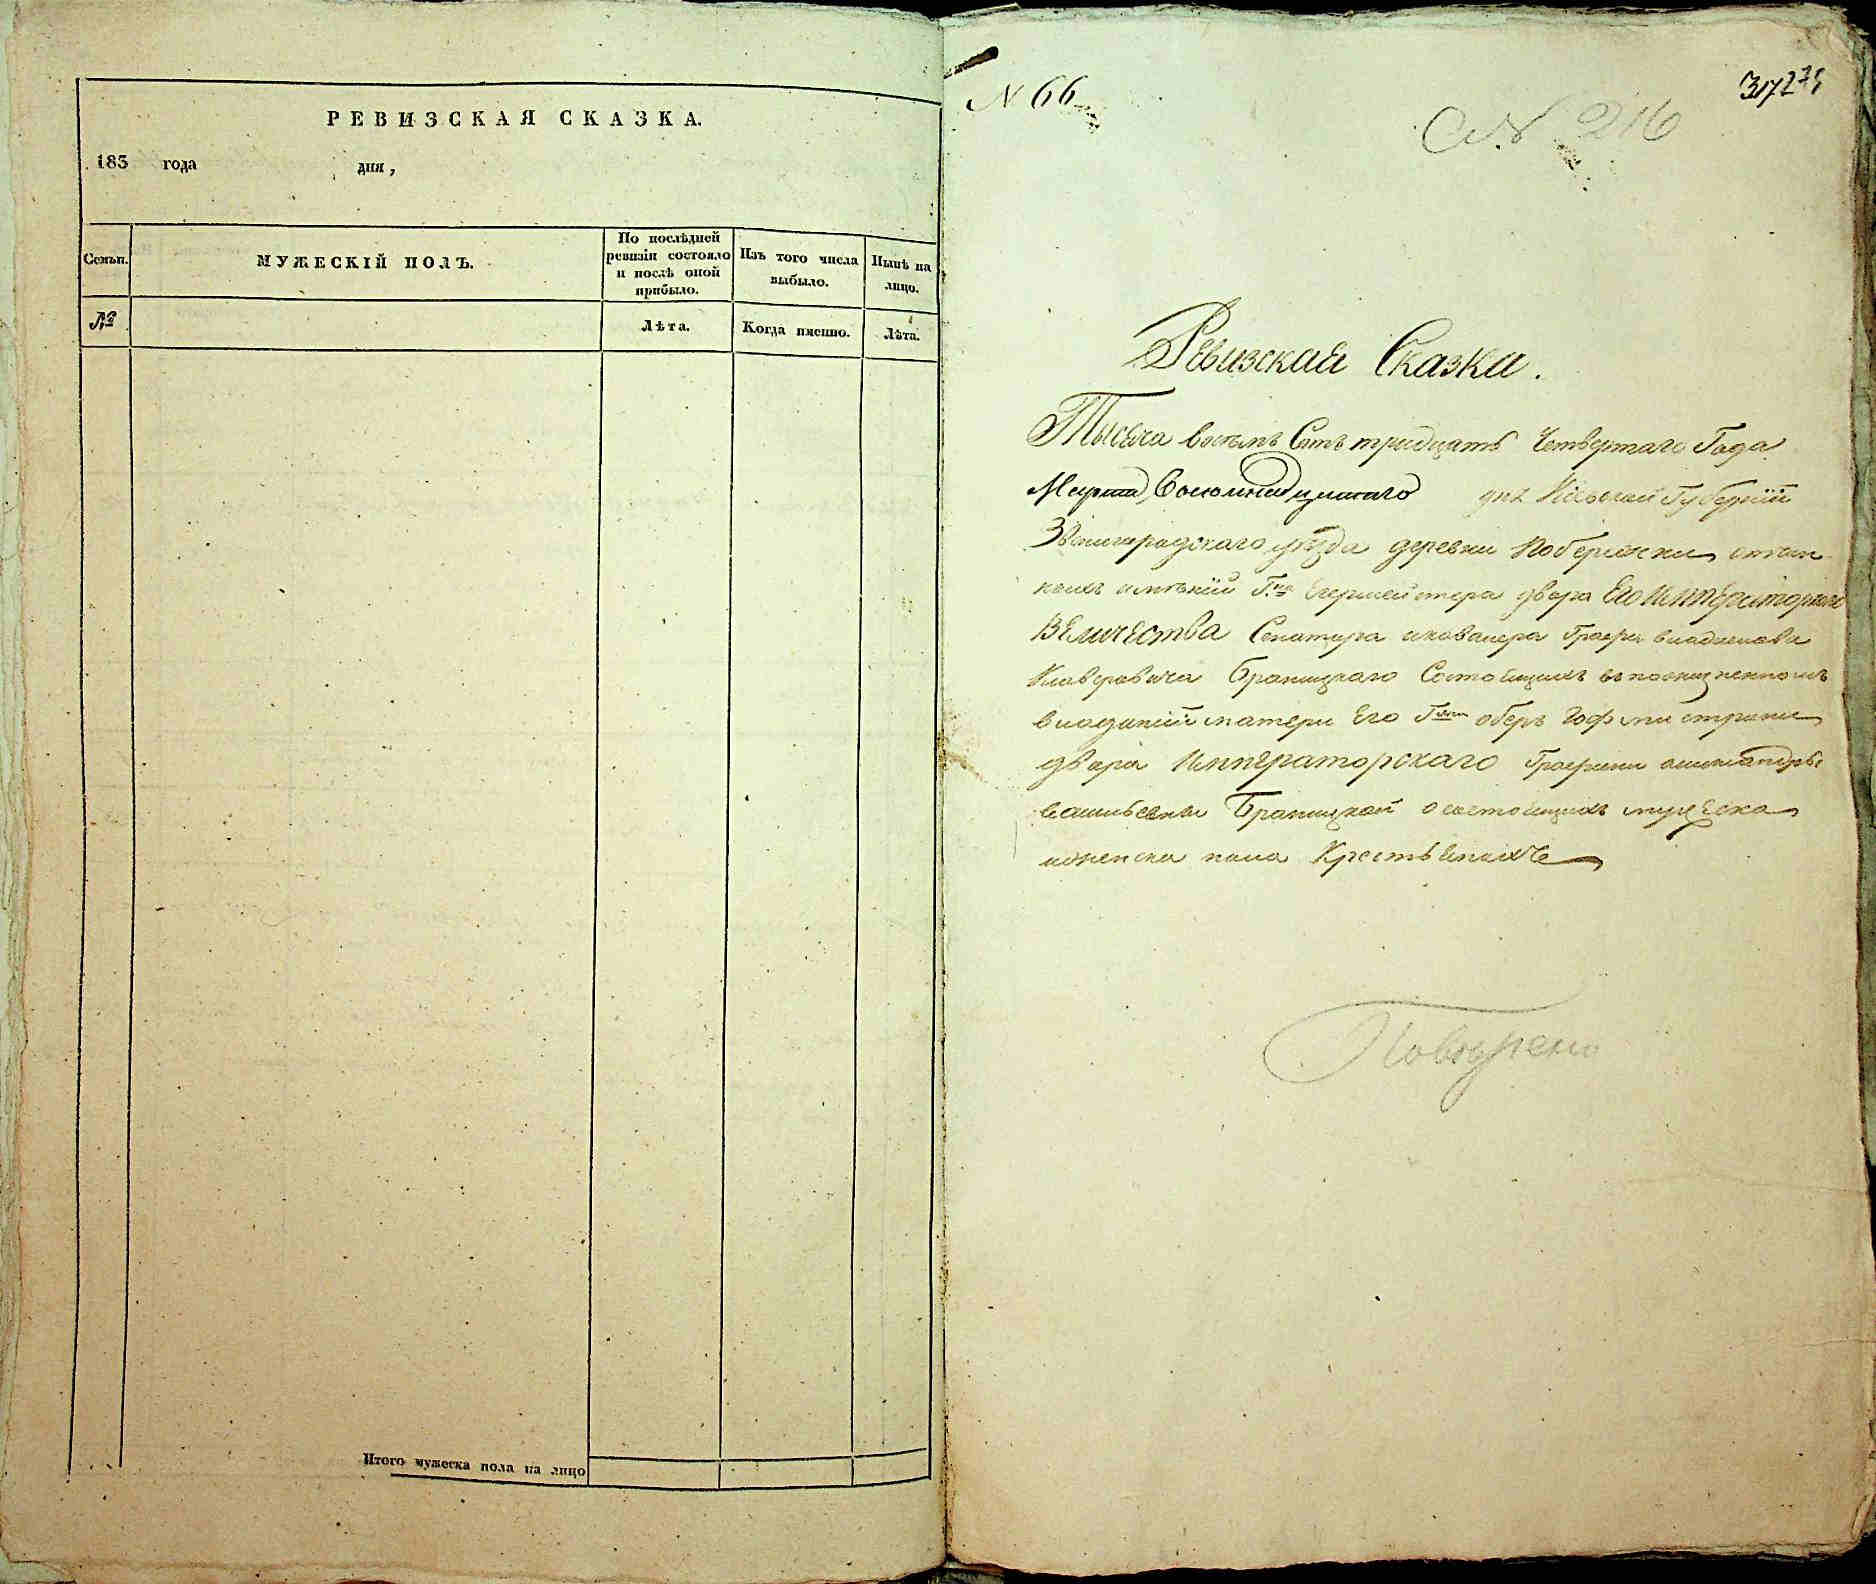 РЕВИЗСКАЯ СКАЗКА.
183 года дня,
Семьи.
МУЖЕСКІЙ ПОЛЪ.
По послѣдней
ревизіи состояло
и послѣ оной
прибыло.
Изъ того числа
выбыло.
Нынѣ на
лицо.
№
Лѣта.
Когда именно.
Лѣта.
Итого мужеска пола на лицо
N 66
N. 216
Ревизская Сказка.
Тысяча восемь Сотъ тридцать Четвертаго Года
Марта Восемнадцатаго дня Кіевской Губерніи
Звенигородскаго уѣзда деревни Побережки
имѣніи Г:на Егермейстера двора Его Императорскаго
Величества Сенатора икавалера Графа владислава
Ксаверовича Браницкаго Состоящихъ въ пожизненномъ
владѣніи матери Его Г:жи оберъ Гофмистрини
двора Императорскаго Графини александры
васильевны Браницкой о состоящихъ мужеска
иженска пола Крестьянахъ
Повѣрено